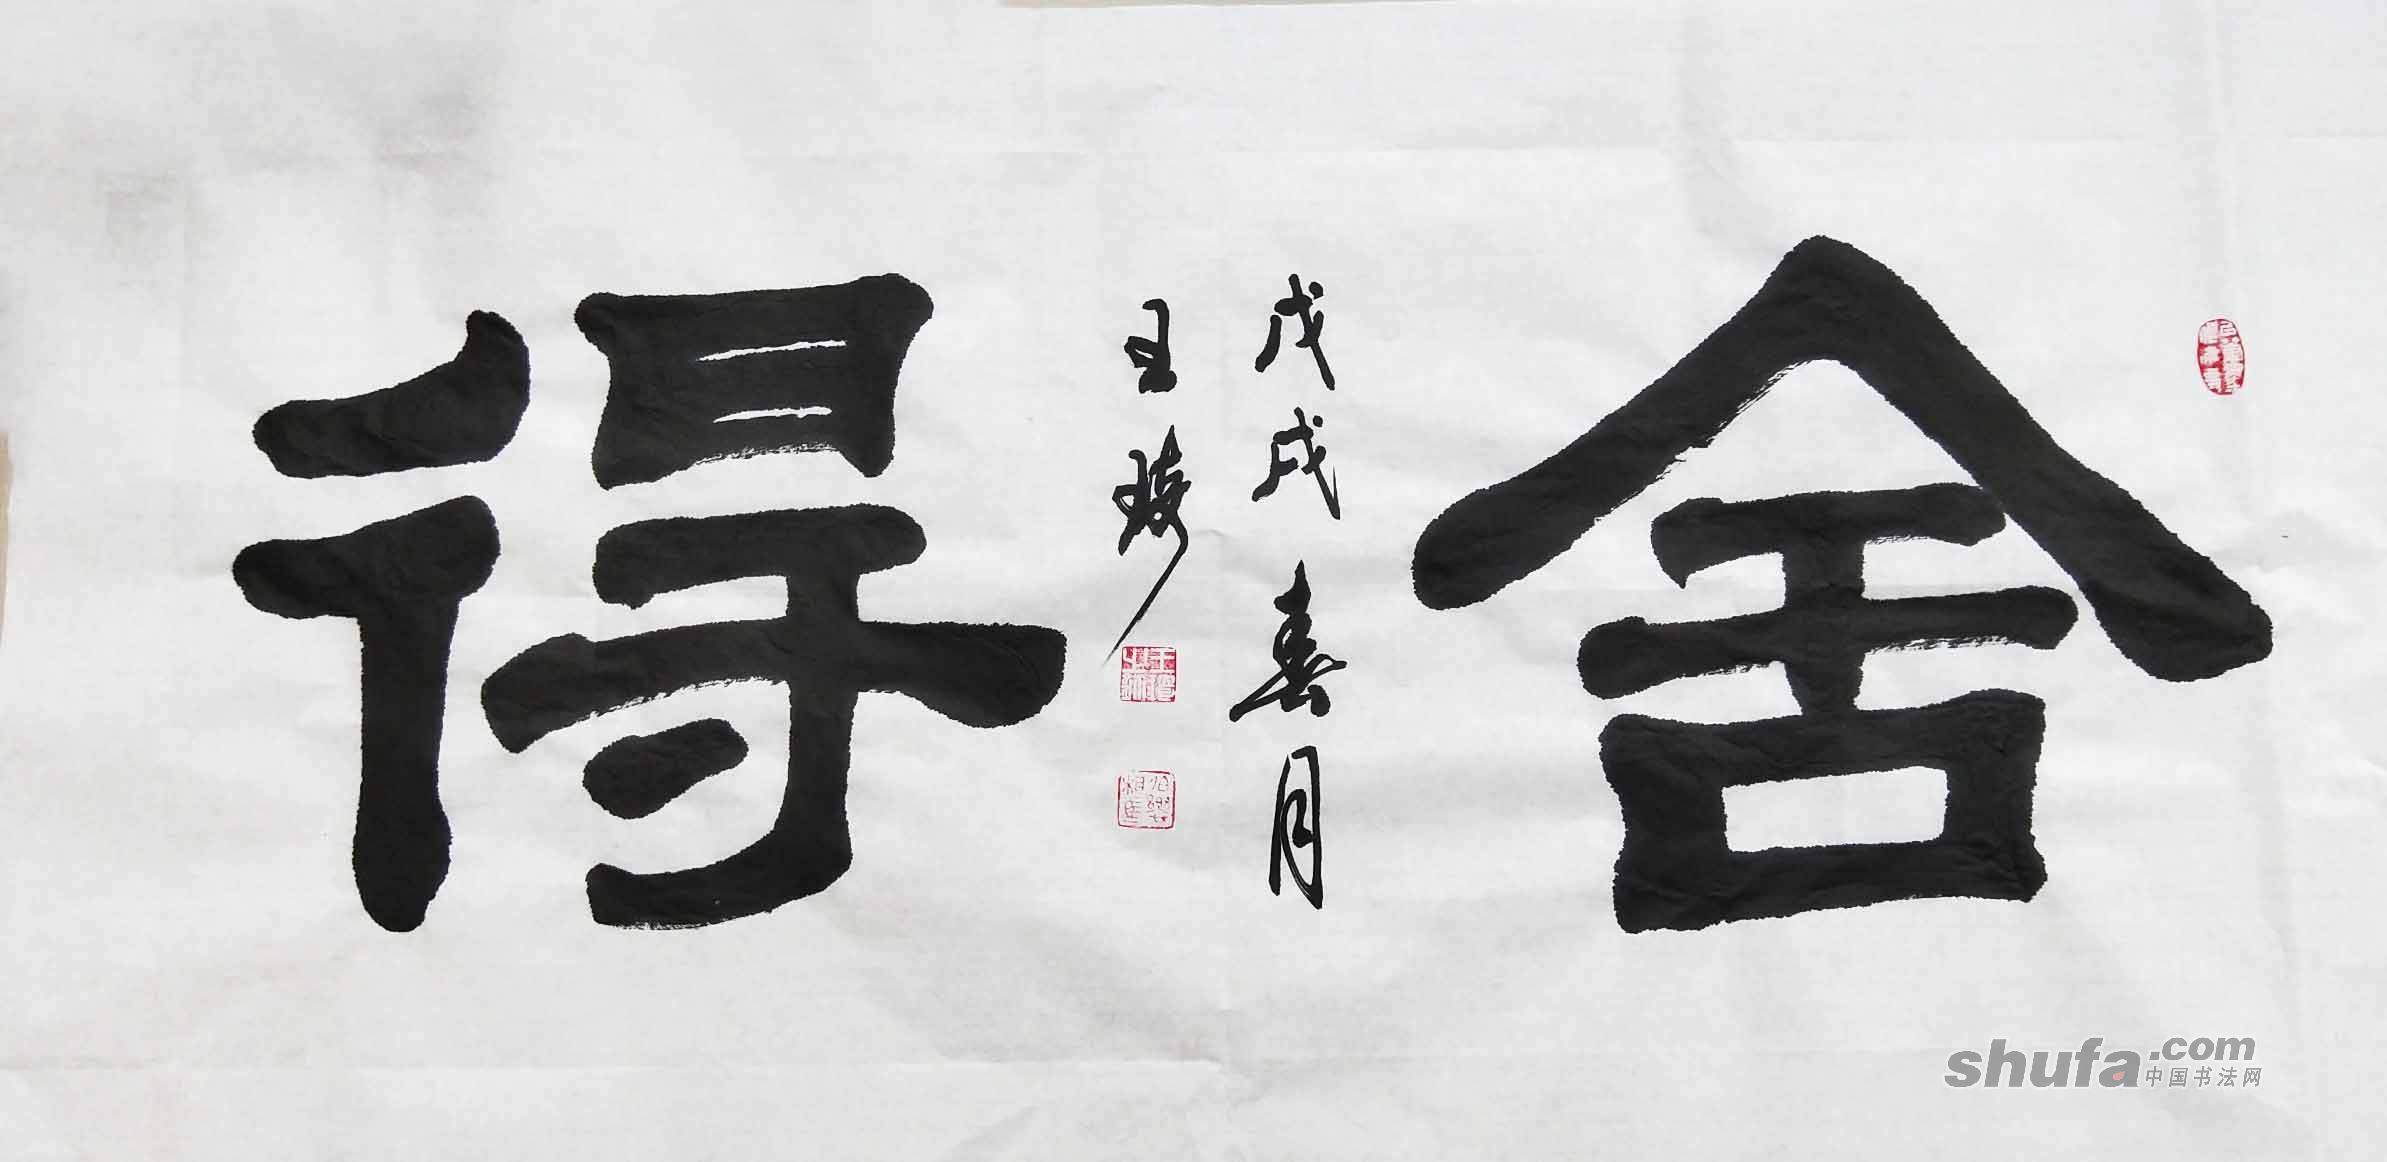 舍得
戊戌春月
王
shufa.com
中国书法网